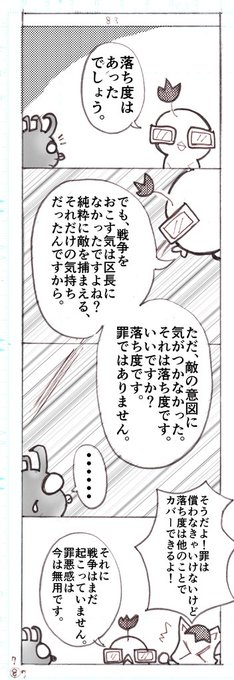 83
落ち度は
あった
でしょう。
でも、戦争を
おこす気は区長に
なかったですよね?
純粋に敵を捕まえる、
それだけの気持ち
だったんですから。
ただ、敵の意図に
気がつかなかった。
それは落ち度です。
いいですか?
落ち度です。
罪ではありません。
・・・・・・
そうだよ!罪は
償わなきゃいけないけど
落ち度は他のことで
カバーできるよ!
それに
戦争はまだ
起こっていません。
罪悪感は
今は無用です。